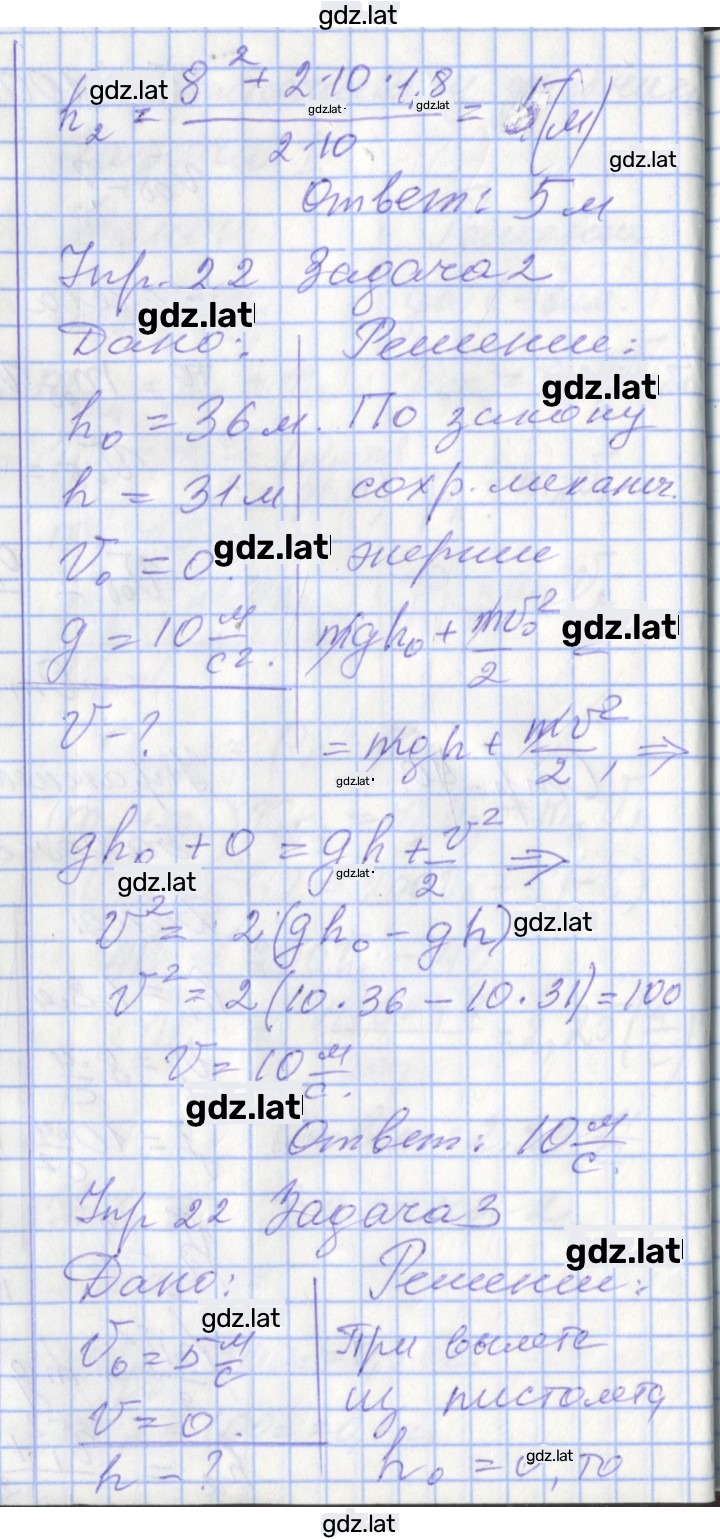 gdz.lat
h₂ = (8² + 2·10·1,8) / (2·10) = 5 (м)
gdz.lat
gdz.lat
gdz.lat
gdz.lat
Ответ: 5 м
Упр. 22 Задача 2
gdz.lat
Дано:
Решение:
gdz.lat
h₀ = 36 м.
По закону
h = 31 м
сохр. механич.
V₀ = 0.
gdz.lat
энергии
g = 10 м/с².
mgh₀ + mv₀²/2 =
gdz.lat
V - ?
= mgh + mv²/2, ⇒
gdz.lat
gh₀ + 0 = gh + v²/2 ⇒
gdz.lat
gdz.lat
v² = 2(gh₀ - gh)
gdz.lat
v² = 2(10·36 - 10·31) = 100
V = 10 м/с.
gdz.lat
Ответ: 10 м/с.
Упр 22 Задача 3
gdz.lat
Дано:
Решение:
gdz.lat
V₀ = 5 м/с
При вылете
V = 0.
из пистолета
h - ?
h₀ = 0, то
gdz.lat
gdz.lat